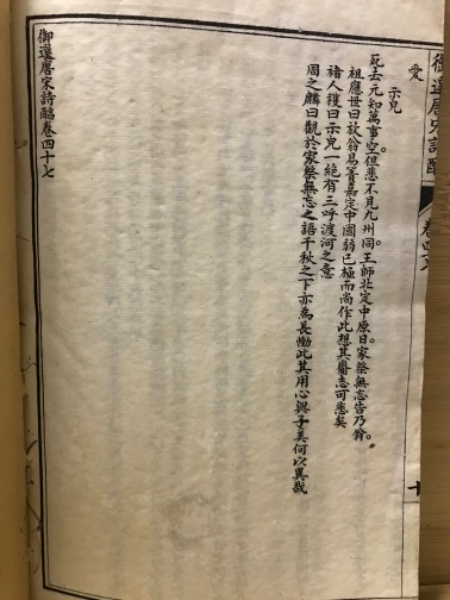 愛
示兒
死去元知萬事空。但悲不見九州同。王師北定中原日。家祭無忘告乃翁。
祖應世曰放翁易簀嘉定中國弱已極而尚作此想其齎志可悲矣
禇人穫曰示兒一絕有三呼渡河之意
周之麟曰觀於家祭無忘之語千秋之下亦為長慟此其用心與子美何以異哉
御選唐宋詩醇卷四十七